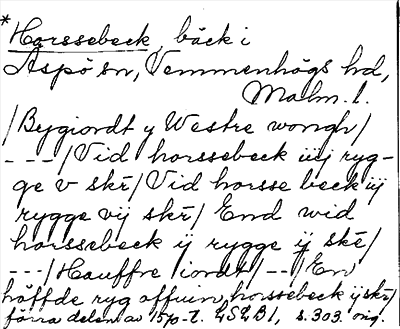 *Horssebeck, bäck i
Aspö sn, Vemmenhögs hd,
Malm. l.
/Bygiordt y Westre wongh/
---/Vid horssebeck iiij ryg-
ge v skr̄/Vid horsse beck iij
rygge vij skr̄/ End wid
horssebeck ij rygge ij skr̄/
---/Hauffre iordt/--/En
höffde ryg offuin horssebeck ij skr̄/
förra delen av 1570-t. LSLB1, s. 303 orig.